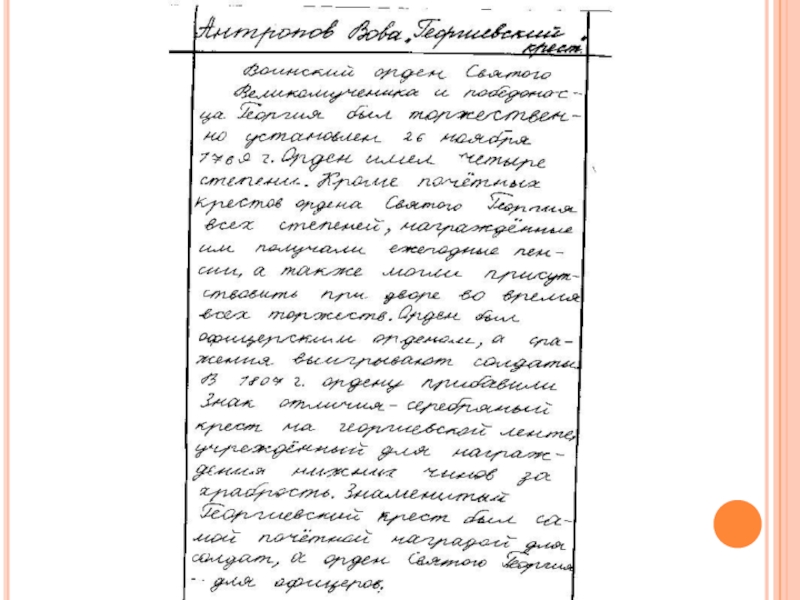 Антропов Вова. "Георгиевский
крест".
Воинский орден Святого
Великомученика и победонос-
ца Георгия был торжествен-
но установлен 26 ноября
1769 г. Орден имел четыре
степени. Кроме почётных
крестов ордена Святого Георгия
всех степеней, награждённые
им получали ежегодные пен-
сии, а также могли присут-
ствовать при дворе во время
всех торжеств. Орден был
офицерским орденом, а сра-
жения выигрывают солдаты.
В 1807 г. ордену прибавили
Знак отличия - серебряный
крест на георгиевской ленте,
учреждённый для награж-
дения нижних чинов за
храбрость. Знаменитый
Георгиевский крест был са-
мой почётной наградой для
солдат, а орден Святого Георгия
-- для офицеров.